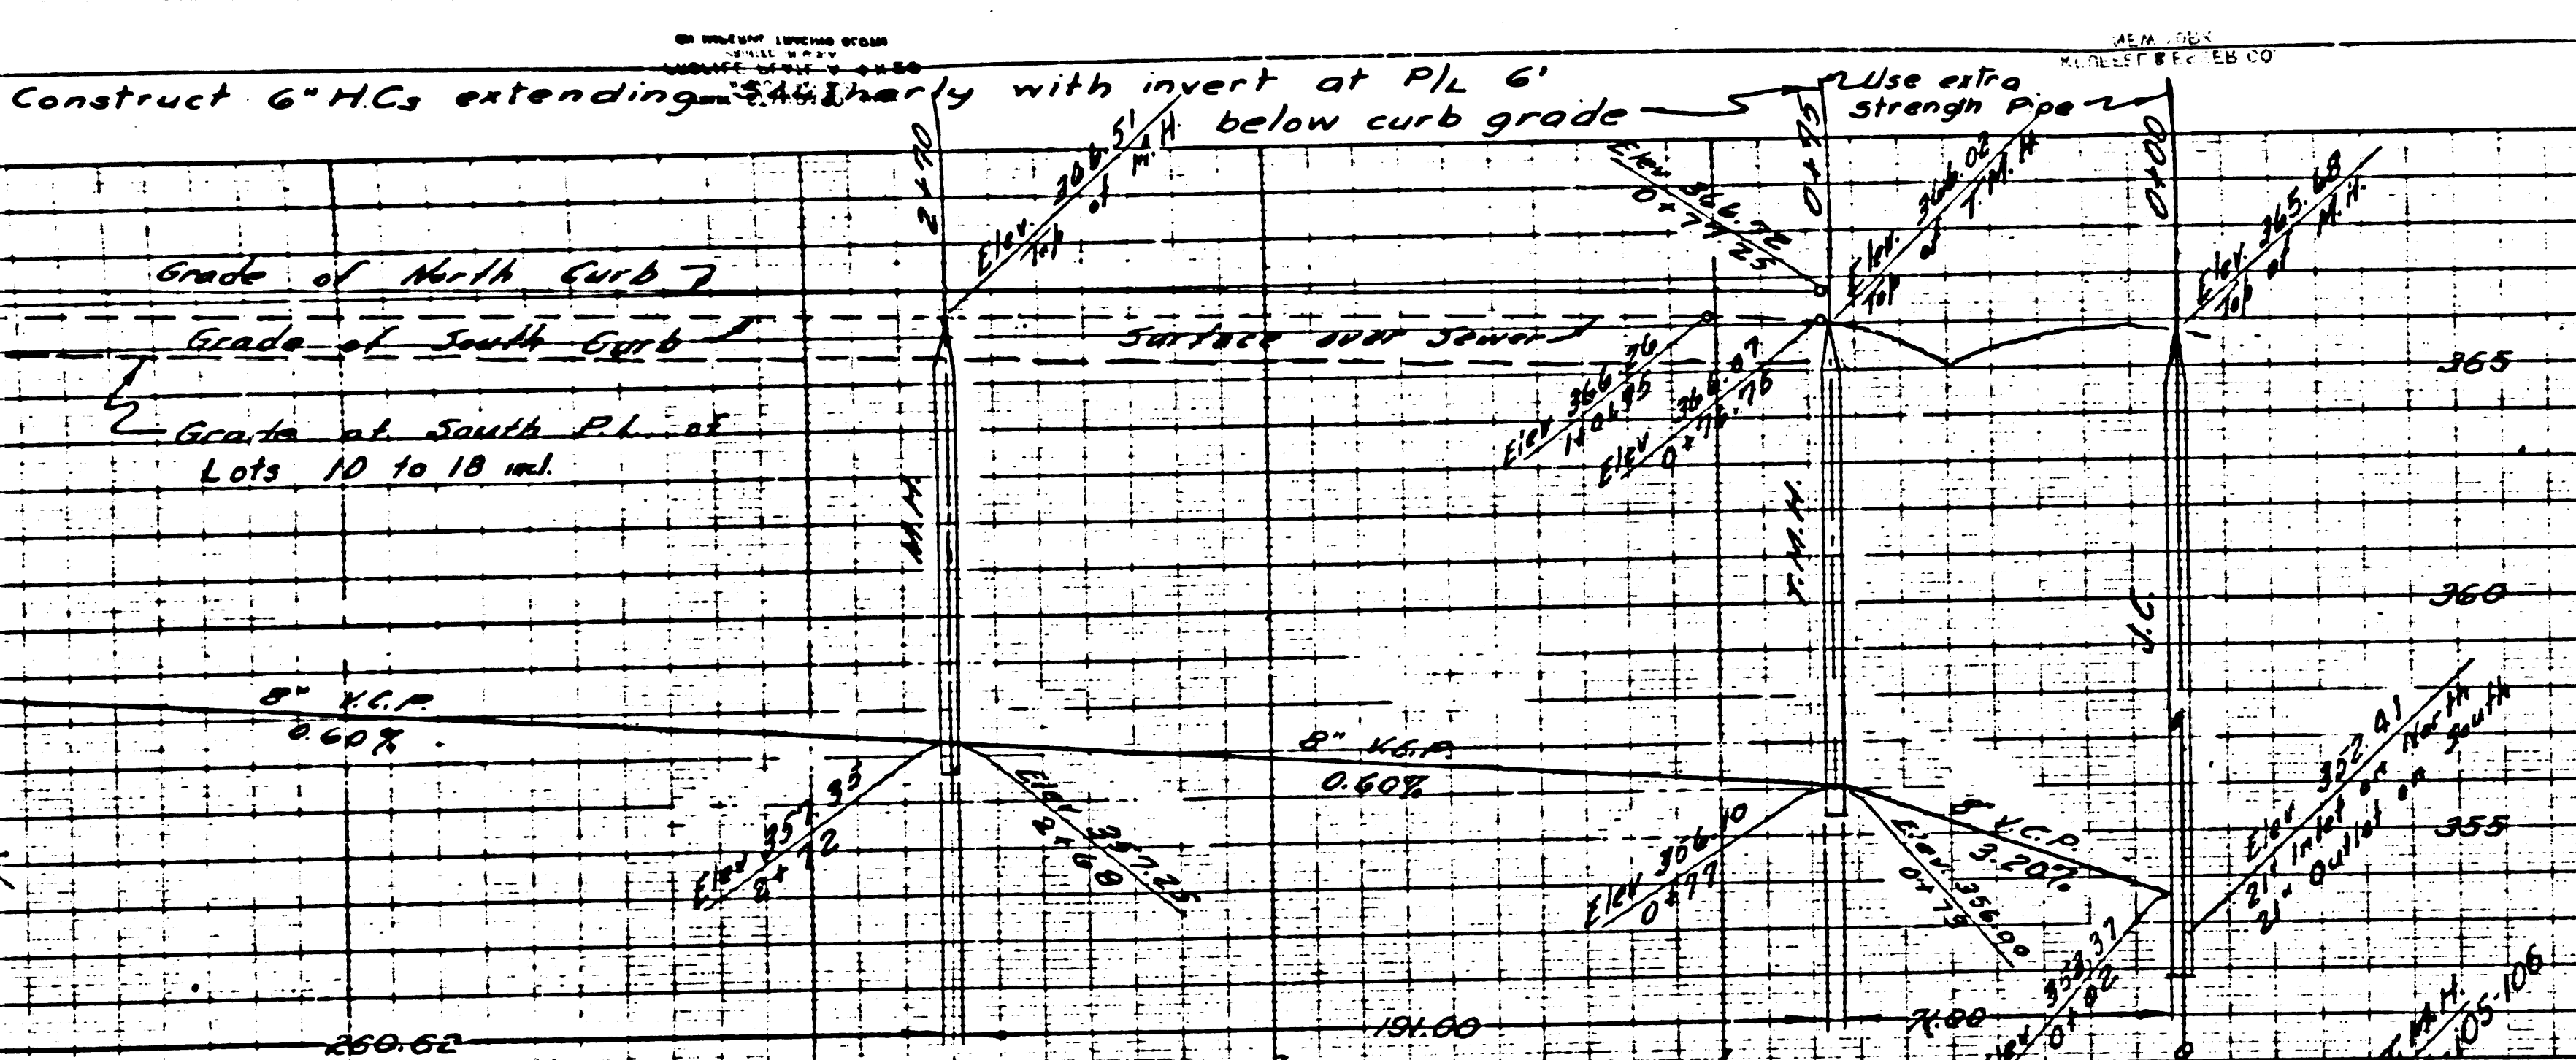 Construct 6" H.Cs extending Southerly with invert at P/L 6'
below curb grade
Use extra
strength Pipe
2+70
Elev. 366.51
Top of M.H.
Elev 366.72
Elev. 366.02
Top of T.M.H.
0+00
Elev. 365.68
Top of M.H.
Grade of North Curb
Grade of South Curb
Surface over Sewer
Grade at South P.L. of
Lots 10 to 18 incl.
Elev 366.26
Elev 366.07
0+76.75
365
M.H.
T.M.H.
360
8" V.C.P.
0.60%
8" V.C.P.
0.60%
8" V.C.P.
3.20%
Elev 357.35
2+72
Elev 357.25
2+68
Elev 356.10
0+77
Elev. 356.00
0+73
Elev 352.41
21" Inlet on North
21" Outlet on South
355
353.37
0+02
260.62
191.00
71.00